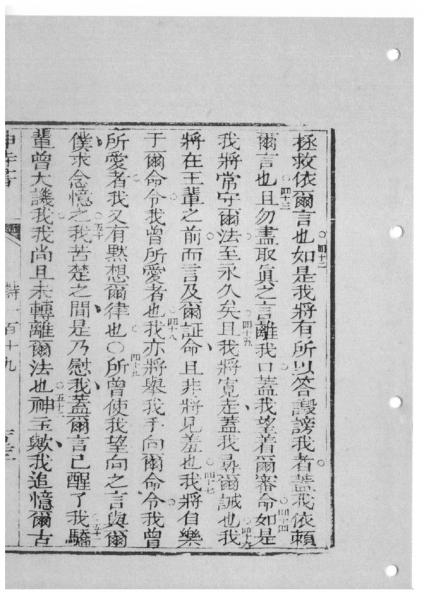 拯救依爾言也四十二如是我將有所以答譭謗我者蓋我依賴
爾言也四十三且勿盡取眞之言離我口蓋我望着爾審命四十四如是
我將常守爾法至永久矣四十五且我將寬走蓋我尋爾誡也四十六我
將在王輩之前而言及爾証命且非將見羞也四十七我將自樂
于爾命令我曾所愛者也四十八我亦將舉我手向爾命令我曾
所愛者我又有默想爾律也〇四十九所曾使我望向之言與爾
僕求念憶之五十我苦楚之間是乃慰我蓋爾言已醒了我五十一驕
輩曾大譏我我尚且未轉離爾法也五十二神主歟我追憶爾古
詩 一百十九